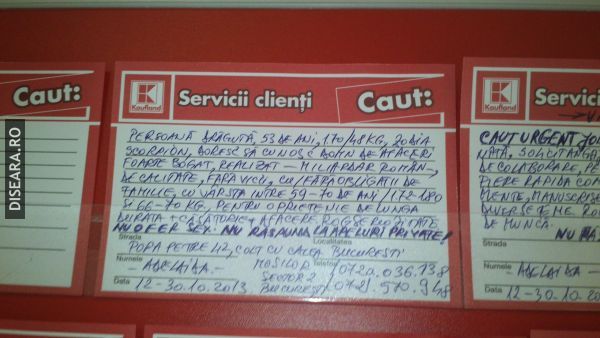 Caut:
K
Kaufland
Servicii clienți
Caut:
PERSOANĂ DRĂGUȚĂ, 53 DE ANI, 170/48 KG, ZODIA
SCORPION, DORESC SĂ CUNOSC DOMN DE AFACERI
FOARTE BOGAT, REALIZAT – MILIARDAR ROMÂN,
DE CALITATE, FĂRĂ VICII, CU/FĂRĂ OBLIGAȚII DE
FAMILIE, CU VÂRSTA ÎNTRE 59-70 DE ANI/172-180
ȘI 66-70 KG, PENTRU O PRIETENIE DE LUNGĂ
DURATĂ + CĂSĂTORIE + AFACERE. ROG SERIOZITATE
NU OFER SEX. NU RĂSPUND LA APELURI PRIVATE!
Strada
Localitatea
POPA PETRE 42, COLT CU CALEA BUCUREȘTI
MOȘILOR
Numele
Telefon
– ADELAIDA –
SECTOR 2
0720.036.738
Data
12-30.10.2013
BUCUREȘTI
0721.570.948
K
Kaufland
Servici
CAUT URGENT
NATĂ, SOLICIT ANGA
DE COLABORARE, PE
PIERE RAPIDĂ COM
MENTE, MANUSCRISE
DIVERSE TEME, RO
DE MUNCĂ.
NU RĂ
Strada
Numele
– ADELAIDA –
Data
12-30.10.20
DISEARA.RO